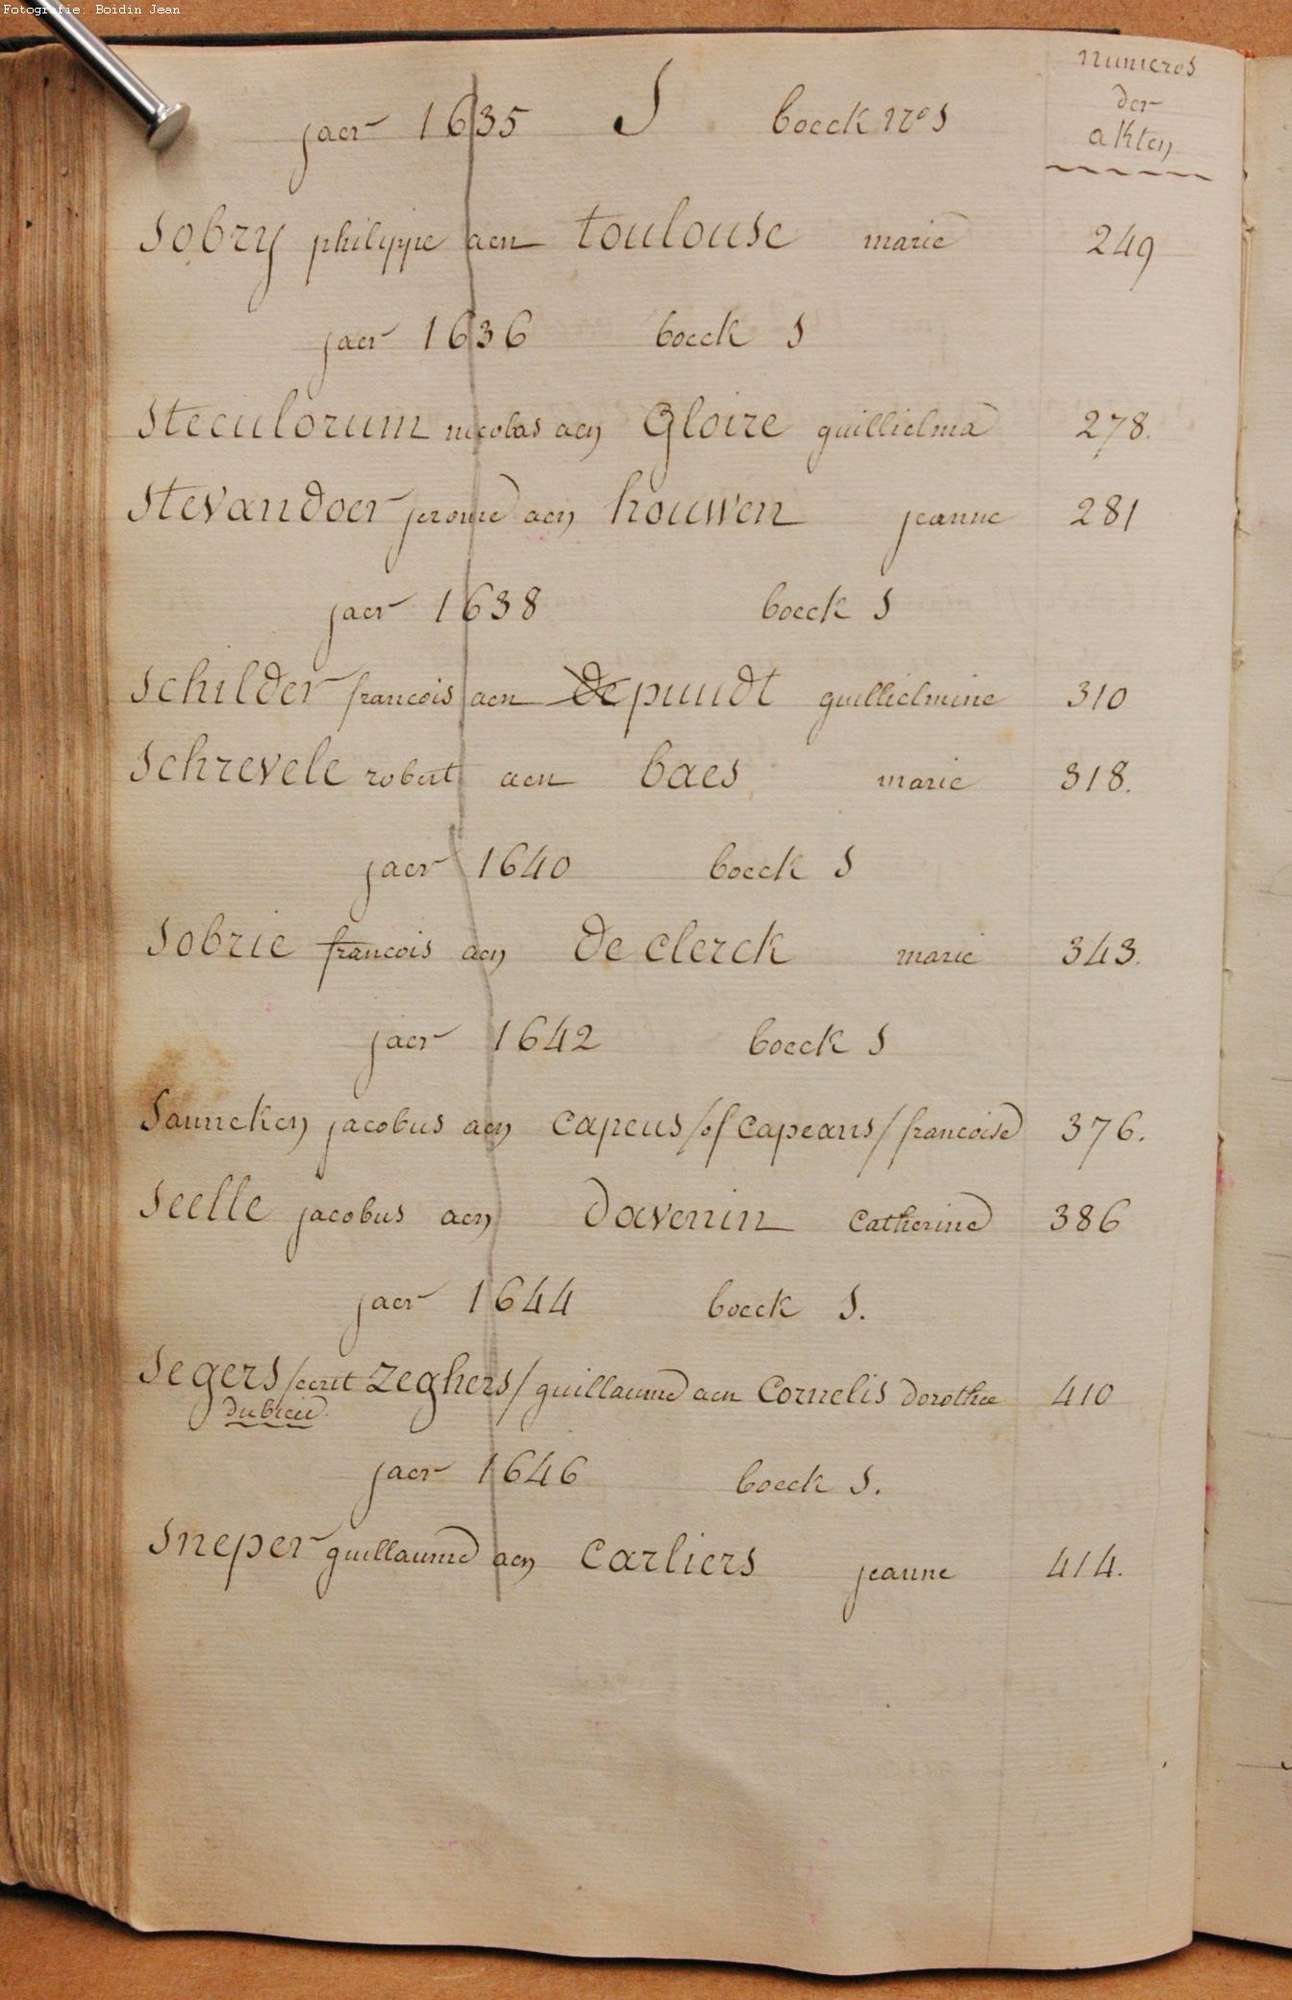 Fotografie: Boidin Jean
numeros
der
akten
jaer 1635 S boeck nº S
Sobry philippe aen toulouse marie 249
jaer 1636 boeck S
Steculorum nicolas aen Gloire guillielma 278.
Stevandoer jerome aen houwen jeanne 281
jaer 1638 boeck S
Schilder francois aen De pundt guillielmine 310
Schrevele robert aen baes marie 318.
jaer 1640 boeck S
Sobrie francois aen De clerck marie 343.
jaer 1642 boeck S
Sanneken jacobus aen capeus /of capeans/ francoise 376.
Seelle jacobus aen Davenin Catherine 386
jaer 1644 boeck S.
Segers /ecrit Zeghers/ guillaume aen Cornelis Dorothee 410
jaer 1646 boeck S.
Sneper guillaume aen Carliers jeanne 414.